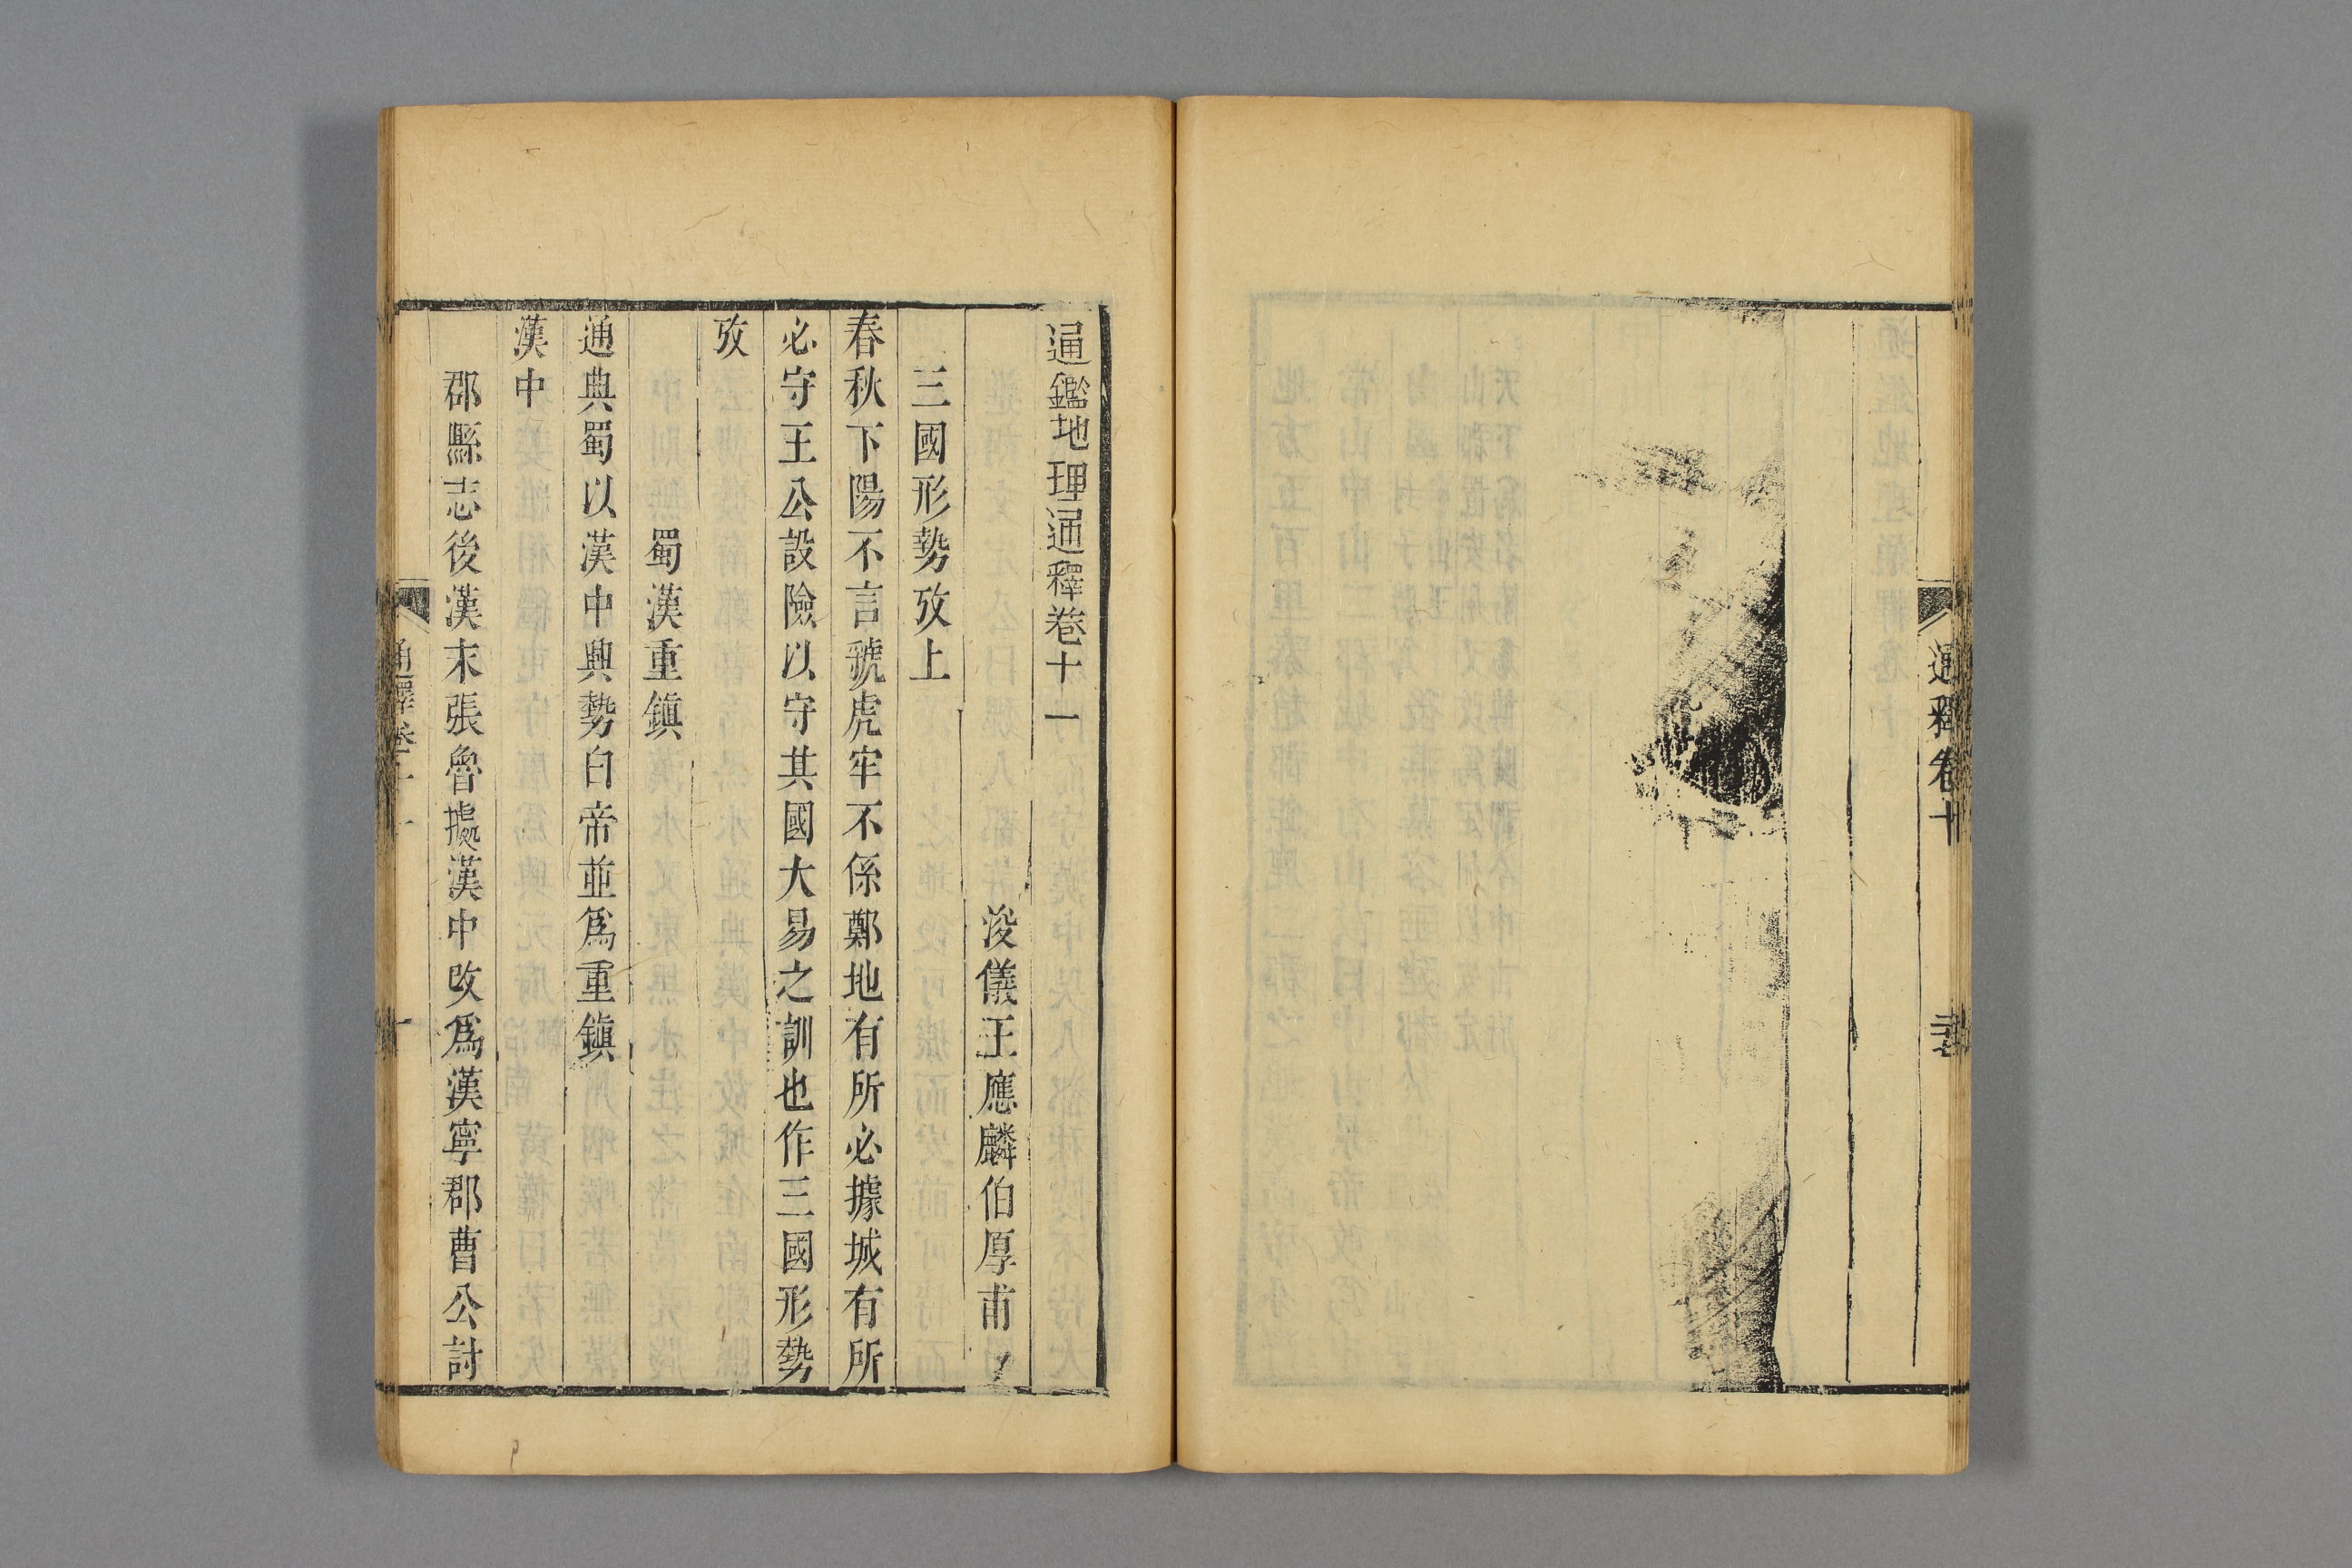 通釋卷十
通鑑地理通釋卷十一
浚儀王應麟伯厚甫
三國形勢攷上
春秋下陽不言虢虎牢不係鄭地有所必據城有所
必守王公設險以守其國大易之訓也作三國形勢
攷
蜀漢重鎮
通典蜀以漢中興勢白帝並爲重鎮
漢中
郡縣志後漢末張魯據漢中改爲漢寧郡曹公討
通釋卷十一
一